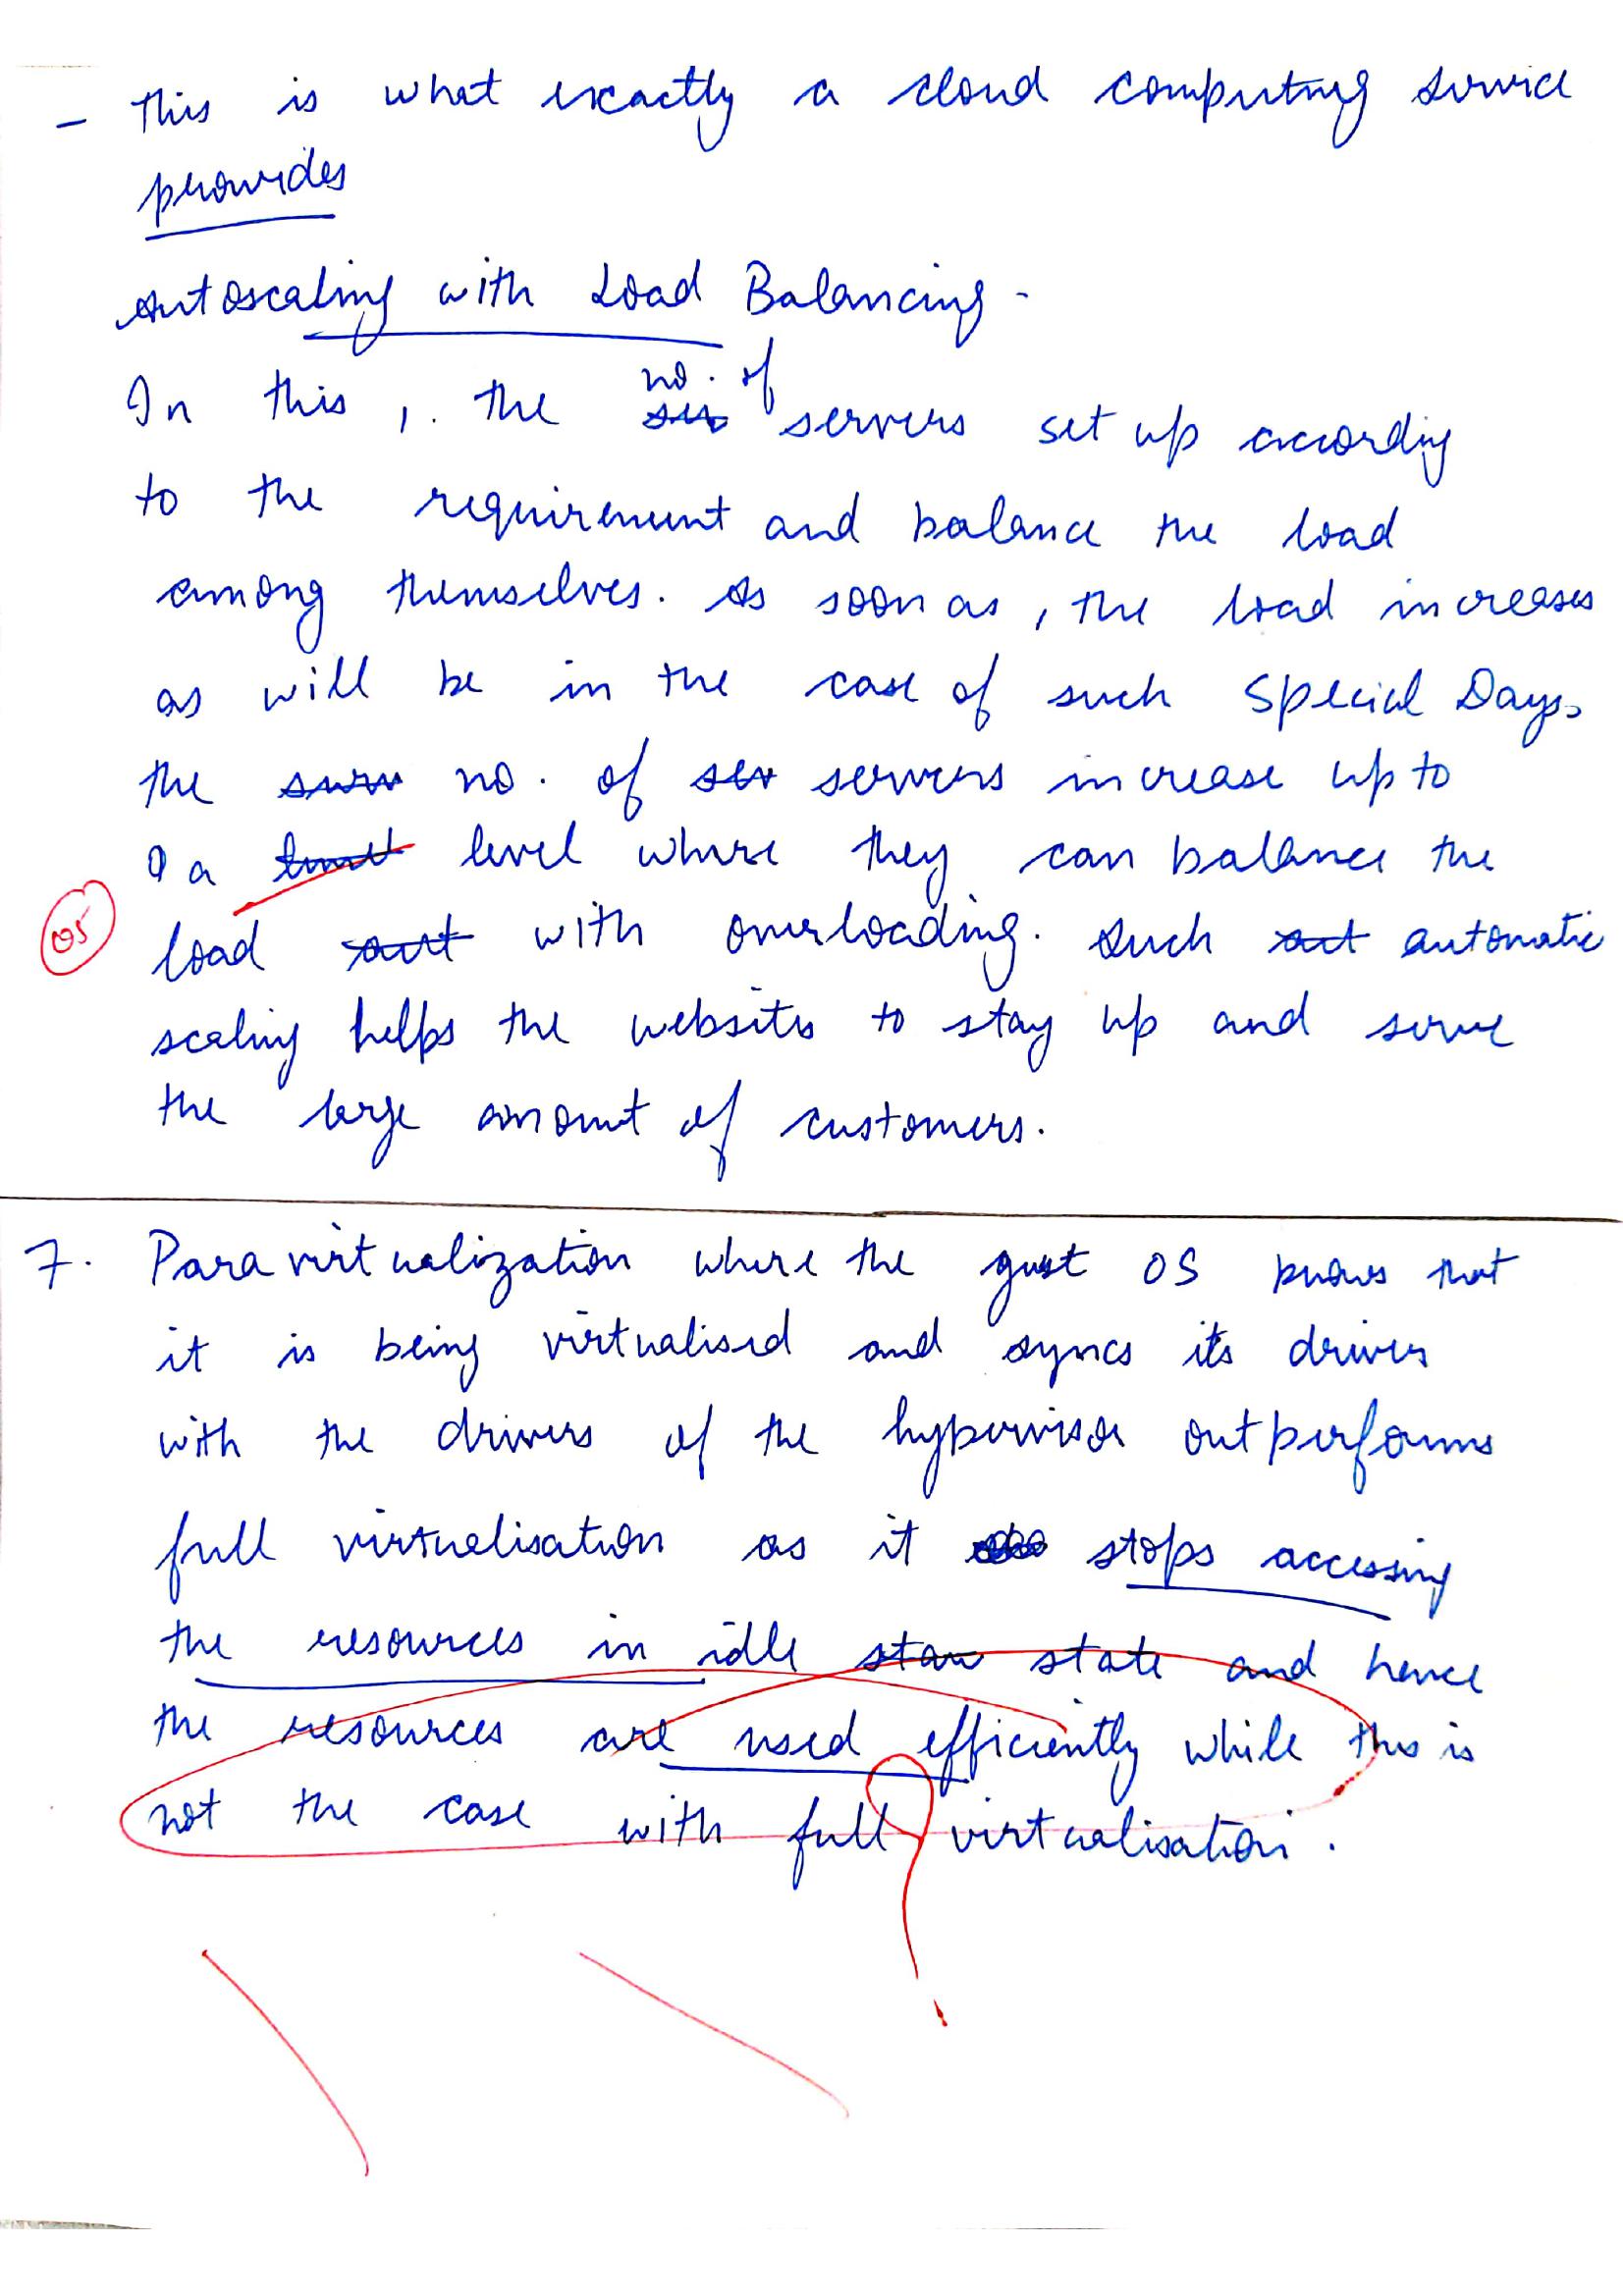 - This is what exactly a cloud computing service
provides
Autoscaling with Load Balancing -
In this, the no. of servers set up according
to the requirement and balance the load
among themselves. As soon as, the load increases
as will be in the case of such Special Days,
the no. of servers increase up to
a level where they can balance the
05
load with overloading. Such automatic
scaling helps the websites to stay up and serve
the large amount of customers.
7. Paravirtualization where the guest OS knows that
it is being virtualised and syncs its drivers
with the drivers of the hypervisor outperforms
full virtualisation as it stops accessing
the resources in idle state and hence
the resources are used efficiently while this is
not the case with full virtualisation.